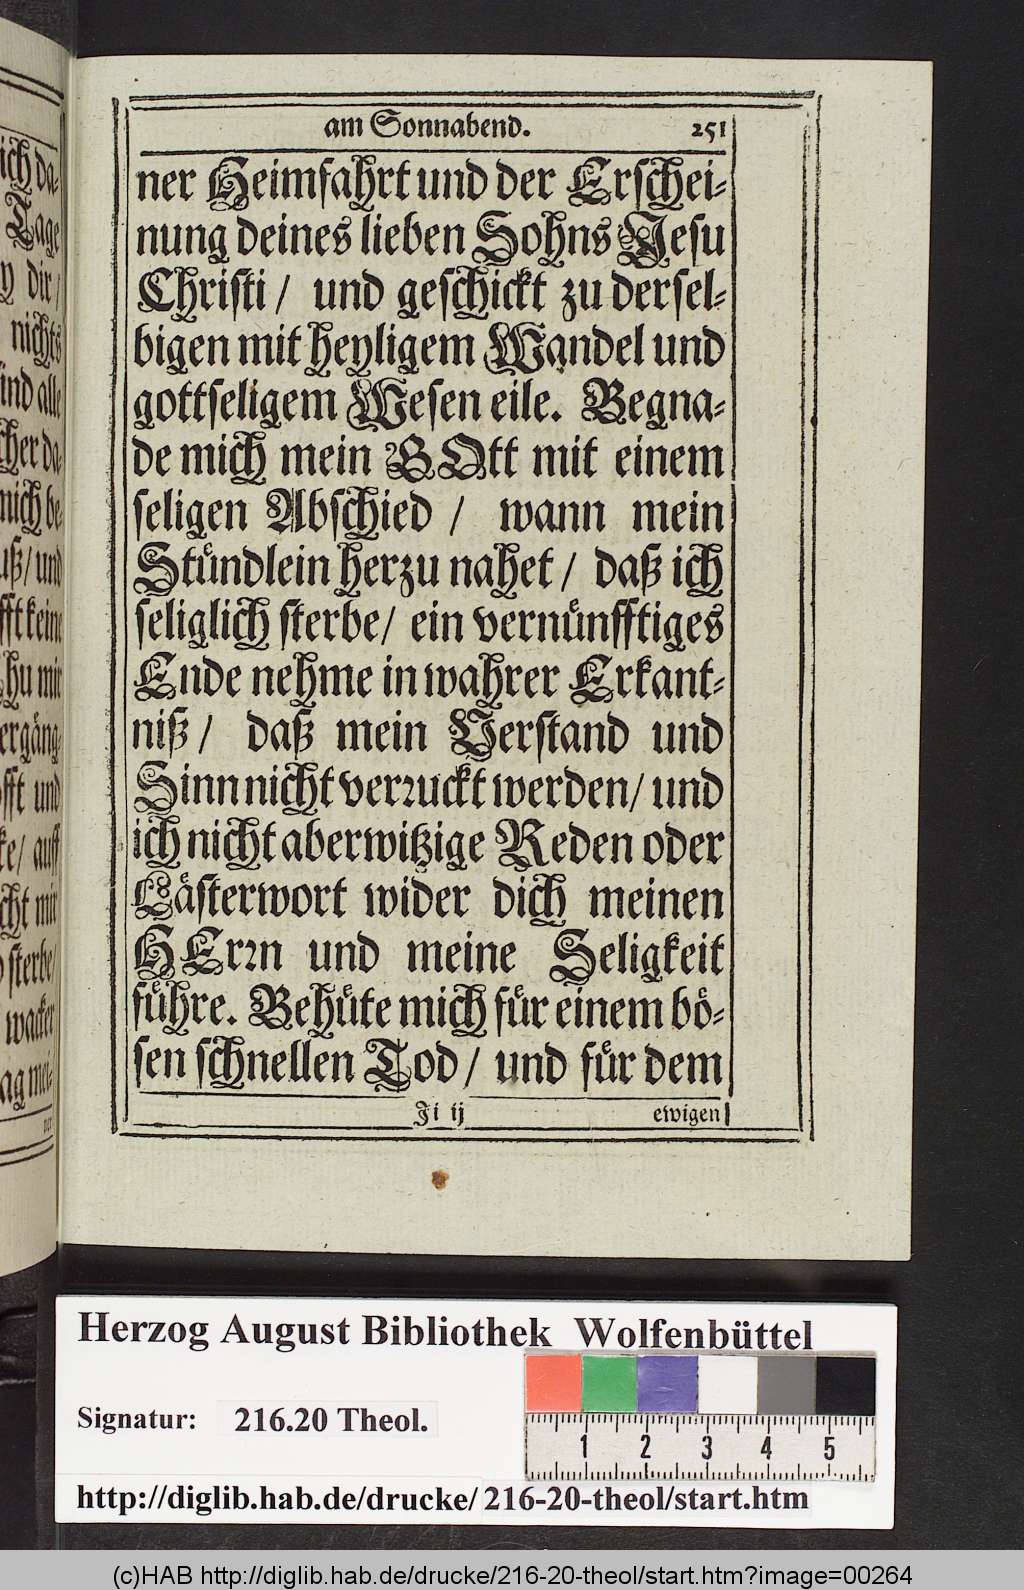 am Sonnabend. 251
ner Heimfahrt und der Erschei-
nung deines lieben Sohns Jesu
Christi / und geschickt zu dersel-
bigen mit heyligem Wandel und
gottseligem Wesen eile. Begna-
de mich mein GOtt mit einem
seligen Abschied / wann mein
Stündlein herzu nahet / daß ich
seliglich sterbe / ein vernünfftiges
Ende nehme in wahrer Erkant-
niß / daß mein Verstand und
Sinn nicht verruckt werden / und
ich nicht aberwitzige Reden oder
Lästerwort wider dich meinen
HErrn und meine Seligkeit
führe. Behüte mich für einem bö-
sen schnellen Tod / und für dem
Ji ij ewigen
ich da-
Tage
dir /
nichts
ind alle
cher da-
mich be-
uß / und
fft keine
hu mir
ergäng-
fft und
ke / auff
cht mir
sterbe /
wacker
ag mei-
ner
Herzog August Bibliothek Wolfenbüttel
Signatur: 216.20 Theol.
1 2 3 4 5
http://diglib.hab.de/drucke/216-20-theol/start.htm
(c)HAB http://diglib.hab.de/drucke/216-20-theol/start.htm?image=00264